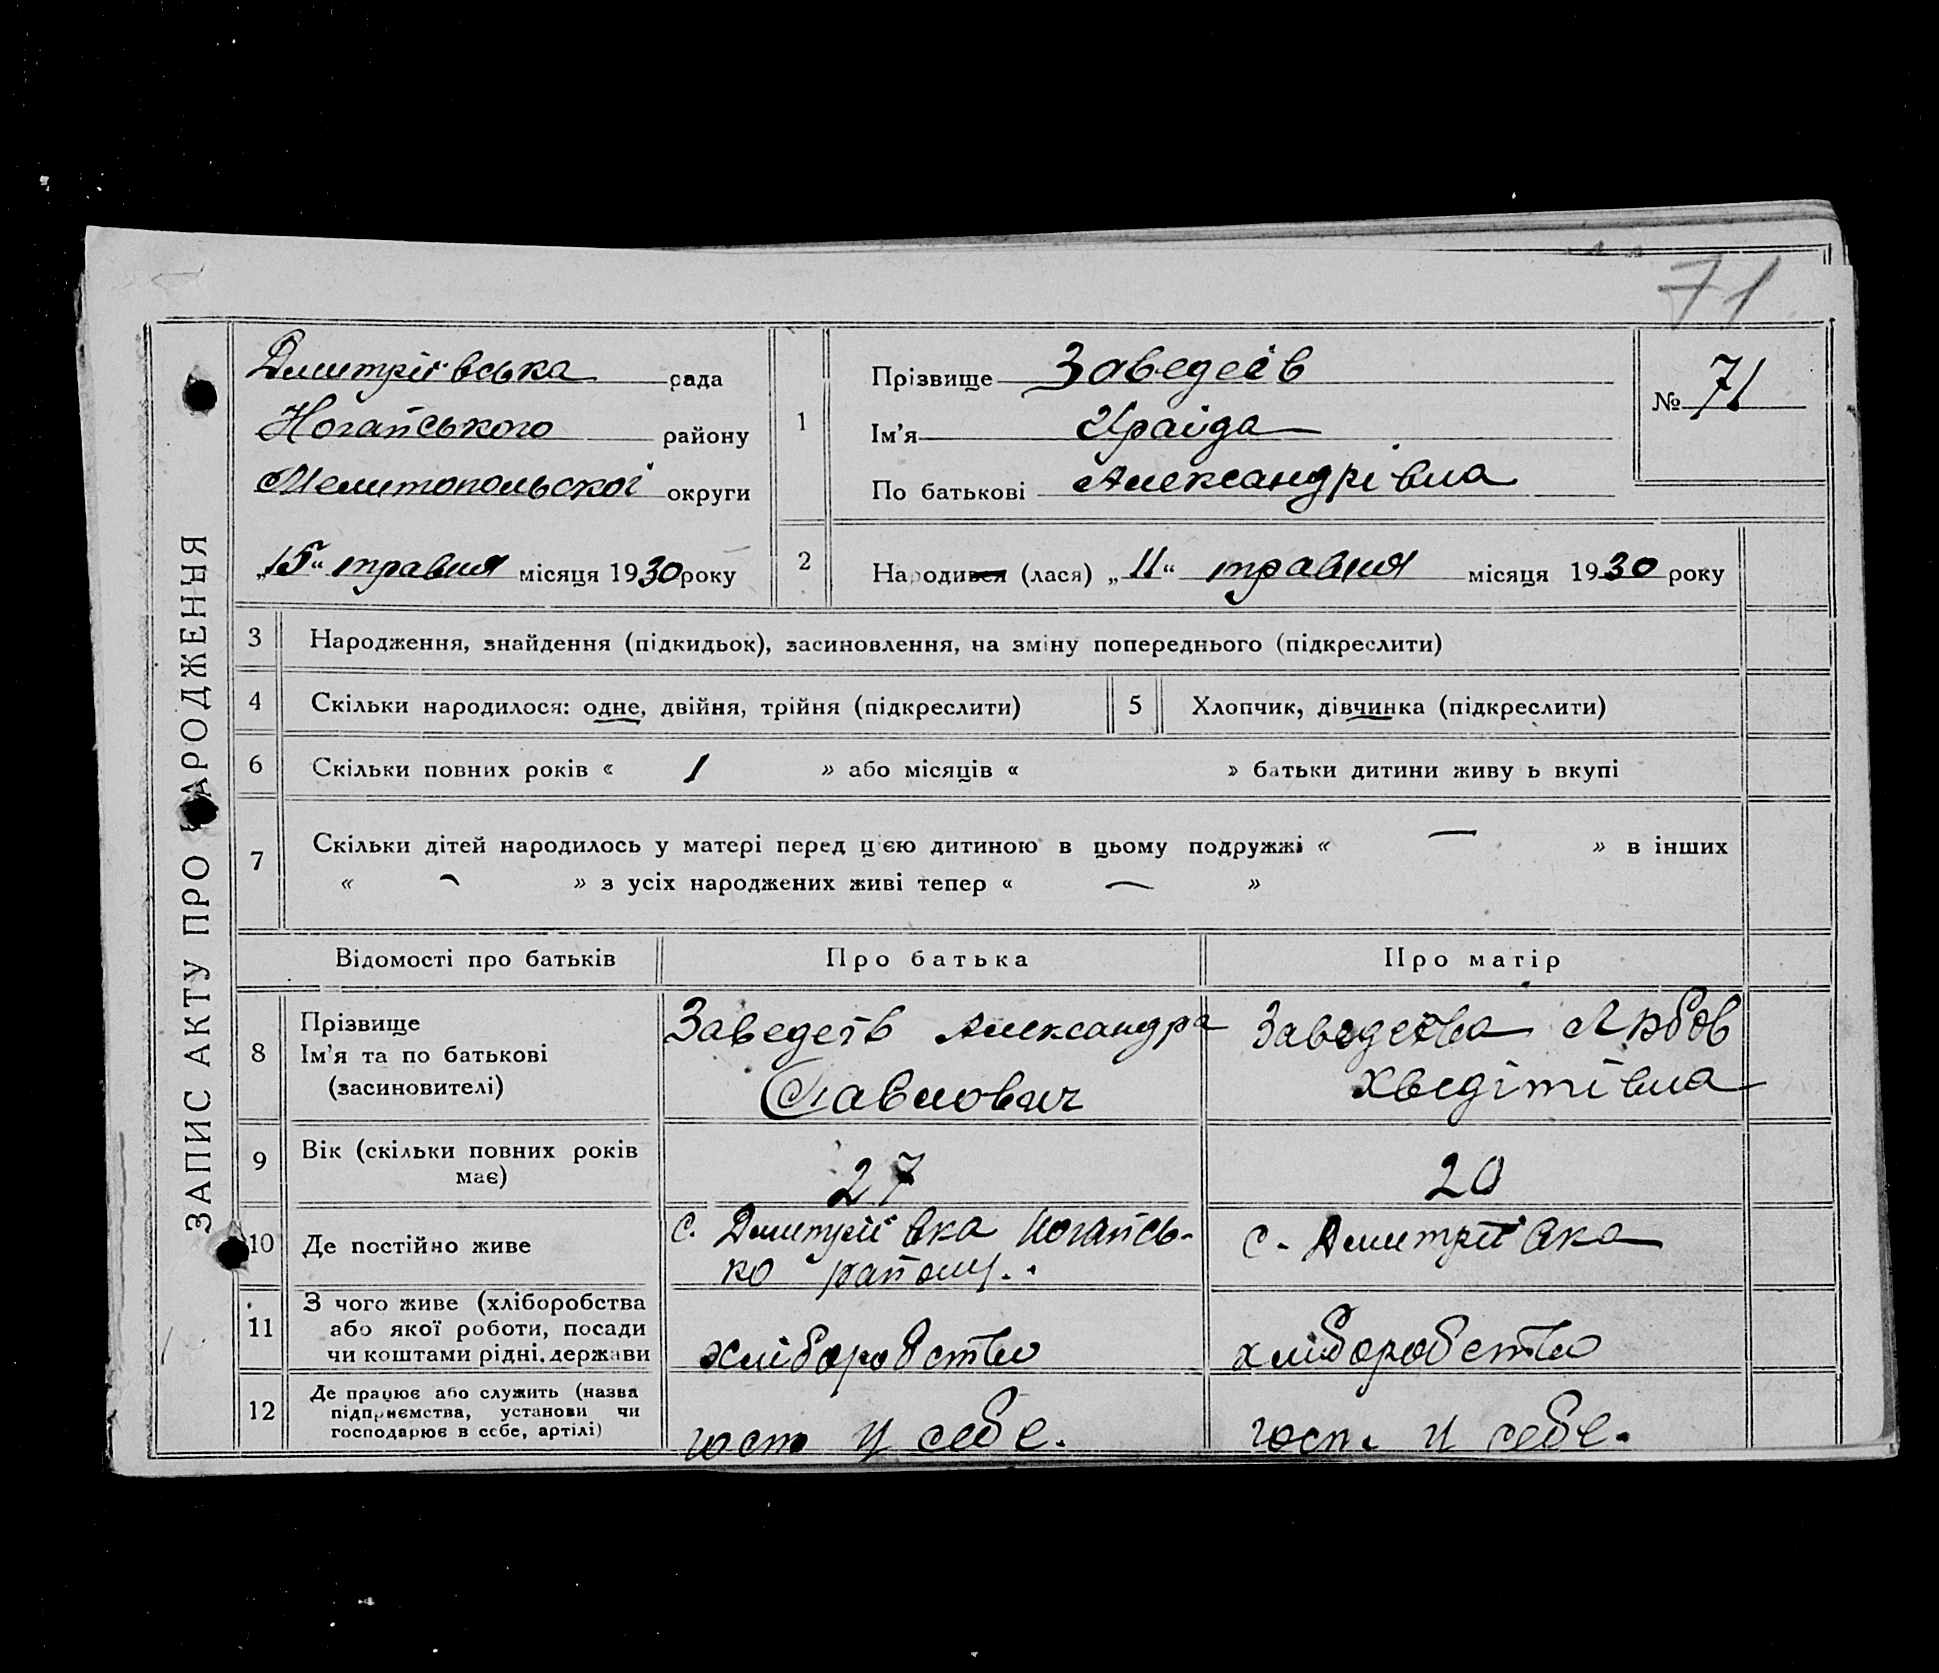 71
ЗАПИС АКТУ ПРО НАРОДЖЕННЯ
Дмитріївська рада
Ногайського району
Мелитопольскої округи
„15“ травня місяця 1930 року
1
Прізвище Заведеєв
Ім'я Ираїда
По батькові Александрівна
№ 71
2
Народився (лася) „11“ травня місяця 1930 року
3 Народження, знайдення (підкидьок), засиновлення, на зміну попереднього (підкреслити)
4 Скільки народилося: одне, двійня, трійня (підкреслити)
5 Хлопчик, дівчинка (підкреслити)
6 Скільки повних років « 1 » або місяців « » батьки дитини живу ь вкупі
7 Скільки дітей народилось у матері перед цією дитиною в цьому подружжі « — » в інших
« — » з усіх народжених живі тепер « — »
Відомості про батьків
Про батька
Про матір
8
Прізвище
Ім'я та по батькові
(засиновителі)
Заведеїв Александра
Павлович
Заведеєва Любов
Хведітівна
9
Вік (скільки повних років
має)
27
20
10 Де постійно живе
с. Дмитріївка Ногайсь-
ко району.
с. Дмитріївка
11
З чого живе (хліборобства
або якої роботи, посади
чи коштами рідні, держави
хліборобство
хліборобство
12
Де працює або служить (назва
підприємства, установи чи
господарює в себе, артілі)
госп у себе.
госп. у себе.